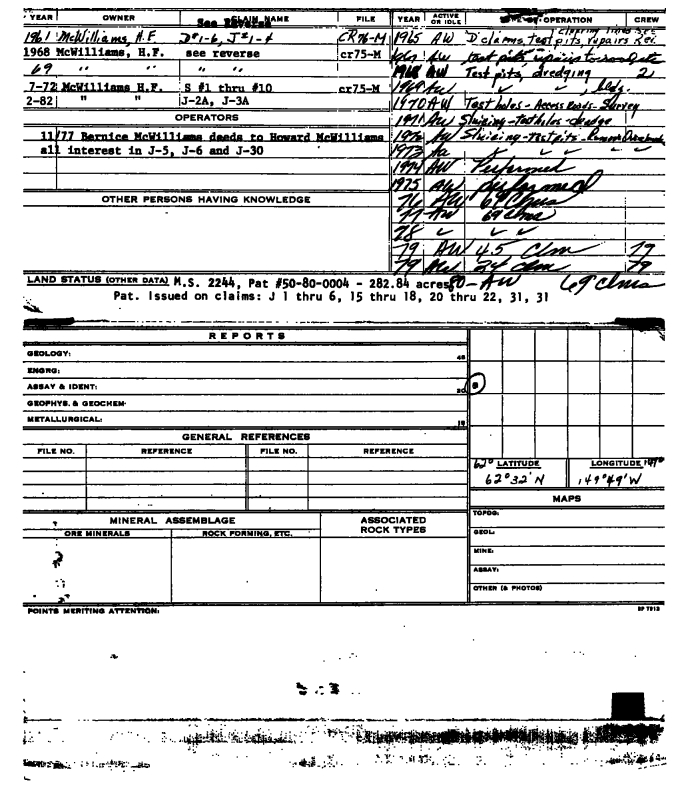 YEAR OWNER CLAIM NAME FILE YEAR ACTIVE OR IDLE OPERATION CREW
See Reverse
1961 McWilliams, H.F D#1-6, J#1-4 CR76-M 1965 AW D claims, test pits, repairs
1968 McWilliams, H.F. see reverse cr75-M AW test pits, repairs to road etc
69 " " " " 1968 AW Test pits, dredging 2
7-72 McWilliams H.F. S #1 thru #10 cr75-M 1969 AW ✓ ✓ , bldg.
2-82 " " J-2A, J-3A 1970 AW Test holes - Access Roads - Survey
OPERATORS 1971 AW Sluicing - testholes - dredge
11/77 Bernice McWilliams deeds to Howard McWilliams 1972 AW Sluicing - Testpits - Remove Overburden
all interest in J-5, J-6 and J-30 1973 ✓ ✓ ✓
1974 AW Performed
1975 AW performed
OTHER PERSONS HAVING KNOWLEDGE 76 AW 69 Clms
77 AW 69 clms
78 ✓ ✓
79 AW 45 Clm 79
79 AW 24 clm 79
LAND STATUS (OTHER DATA) M.S. 2244, Pat #50-80-0004 - 282.84 acres 80 - AW 69 clms
Pat. Issued on claims: J 1 thru 6, 15 thru 18, 20 thru 22, 31, 31
REPORTS
GEOLOGY:
ENGRG:
ASSAY & IDENT:
GEOPHYS. & GEOCHEM:
METALLURGICAL:
GENERAL REFERENCES
FILE NO. REFERENCE FILE NO. REFERENCE
62° LATITUDE LONGITUDE 149°
62°32'N 149°49'W
MAPS
MINERAL ASSEMBLAGE ASSOCIATED ROCK TYPES
ORE MINERALS ROCK FORMING, ETC.
TOPOG:
GEOL:
MINE:
ASSAY:
OTHER (& PHOTOS)
POINTS MERITING ATTENTION: